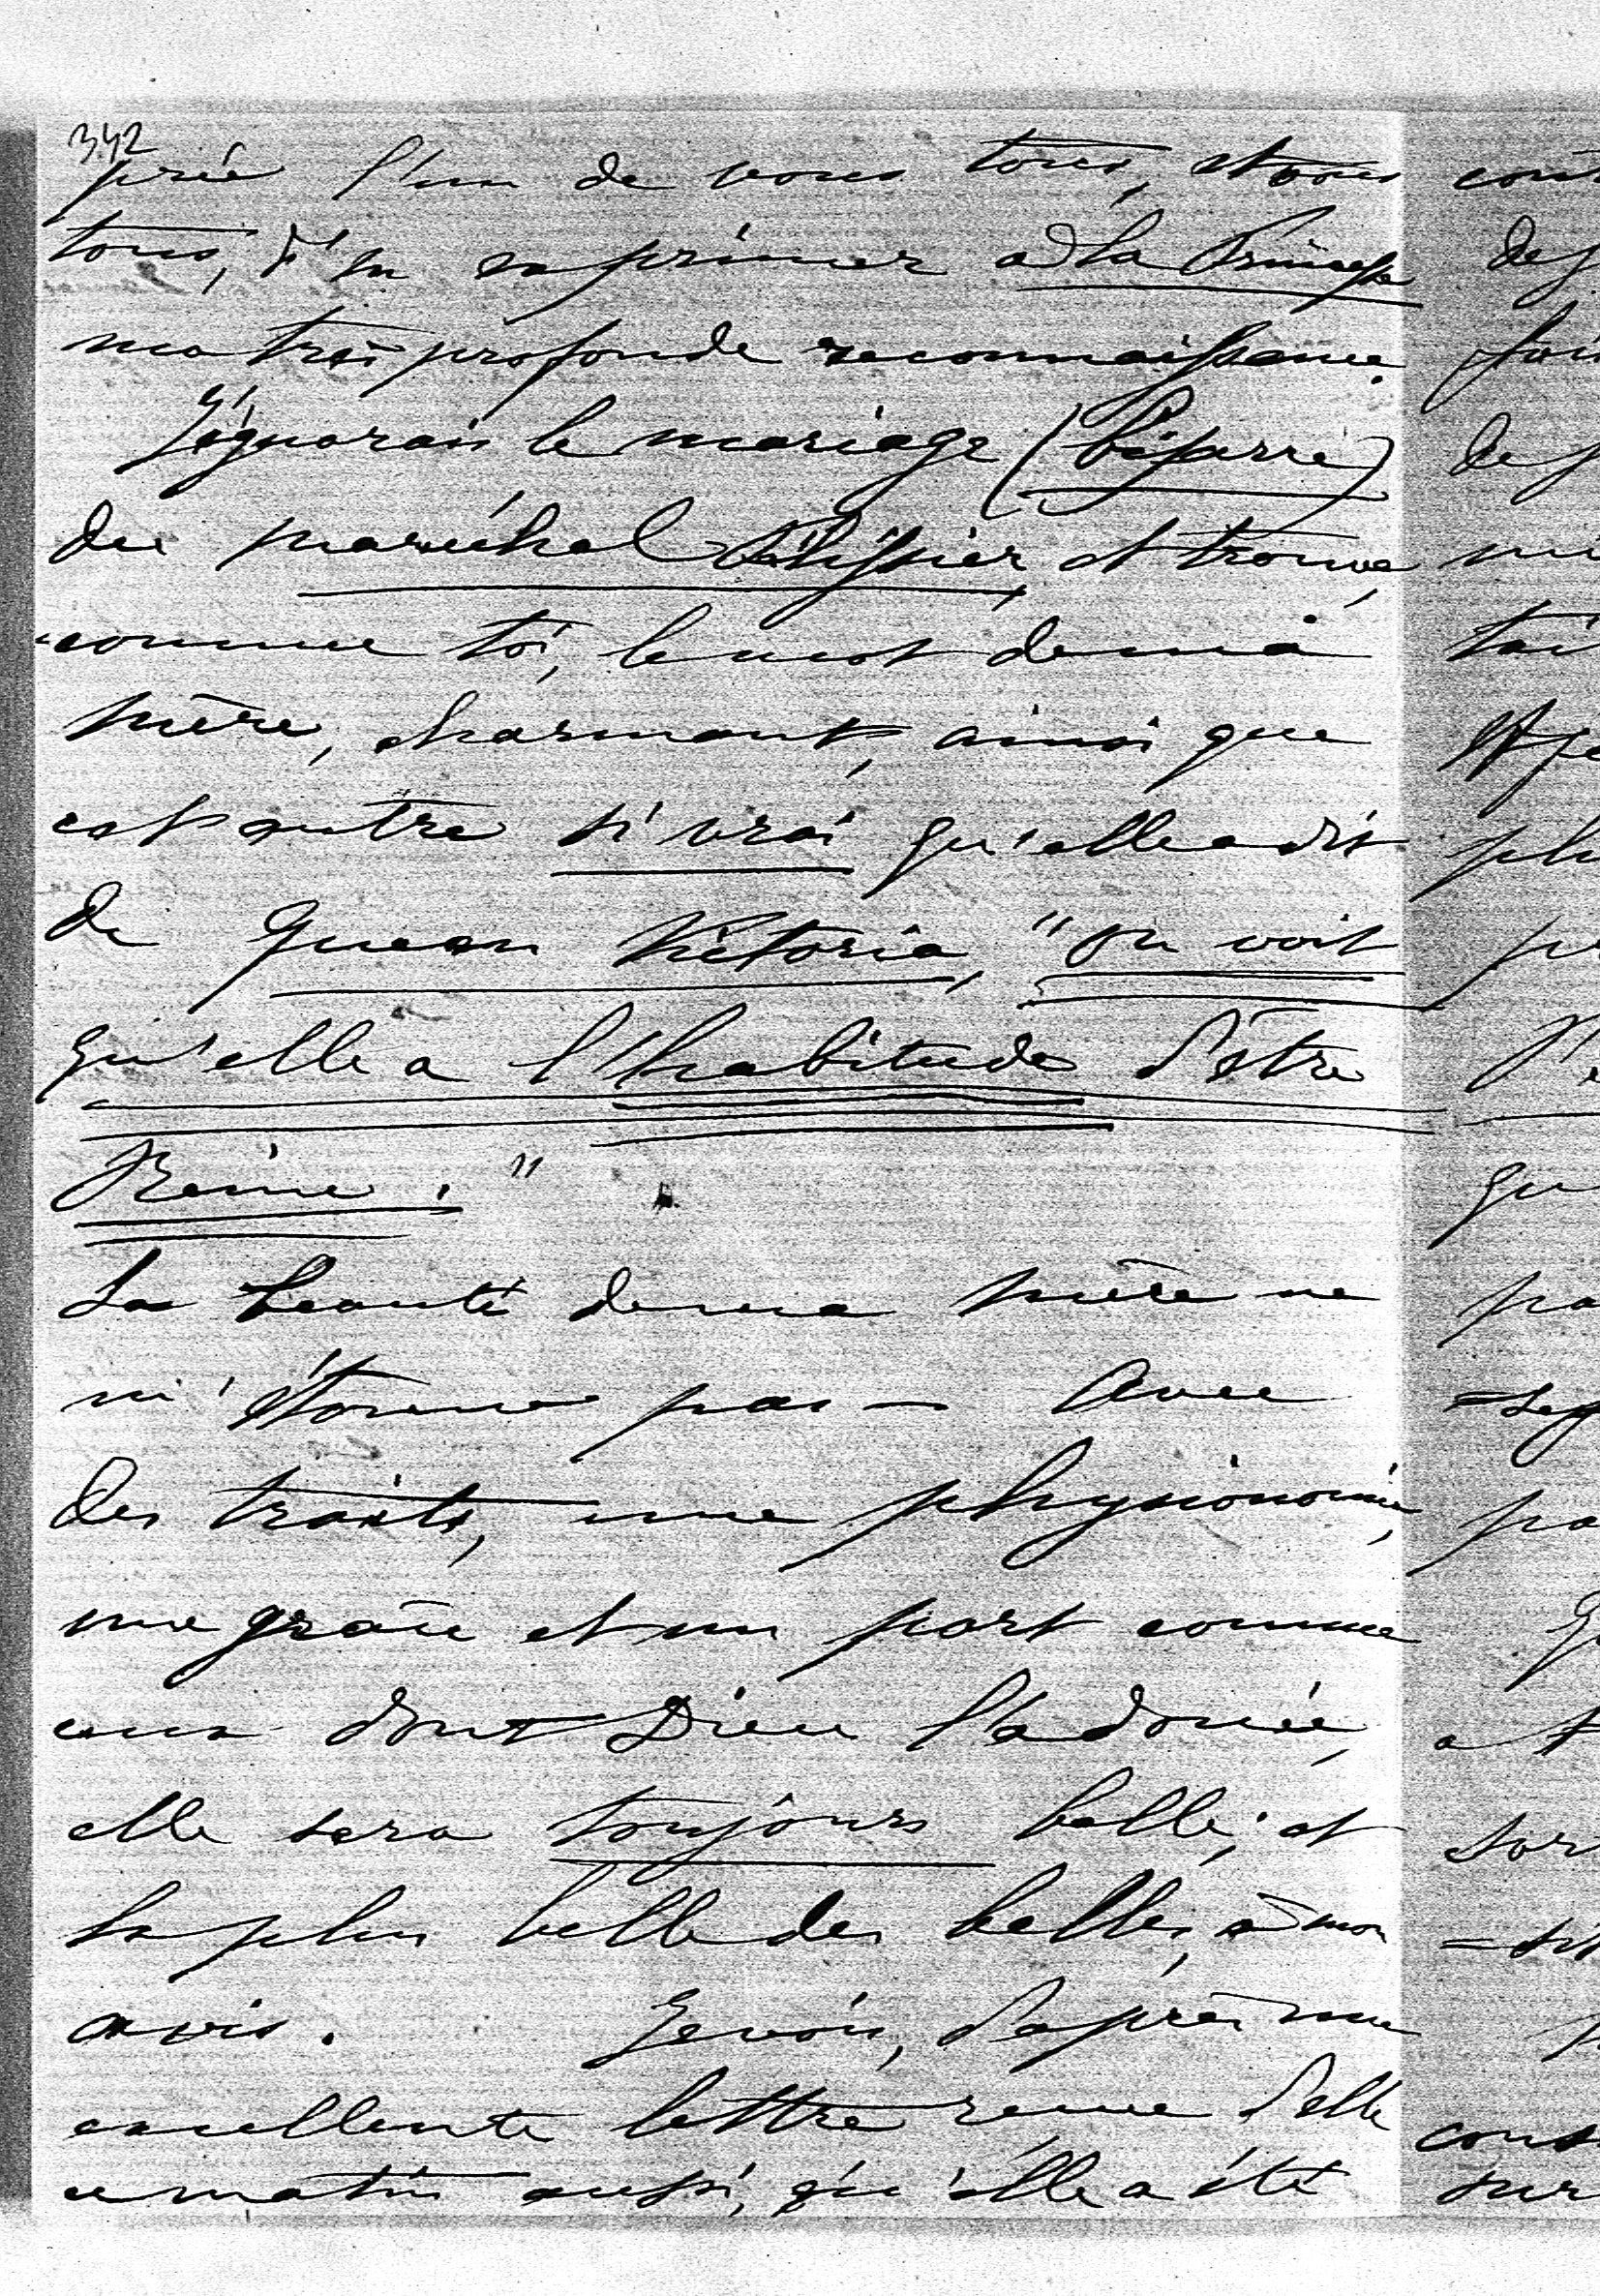 342
prié l'un de vous tous, et vous
tous, d'en exprimer à la Princesse
ma très profonde reconnaissance.
J'ignorais le mariage (bizarre)
du maréchal Pélissier, et trouve,
comme toi, le mot de ma
mère, charmant, ainsi que
cet autre si vrai qu'elle a dit
de Queen Victoria, "on voit
qu'elle a l'habitude d'être
Reine."
La beauté de ma mère ne
m'étonne pas — Avec
des traits, une physionomie,
une grâce et un port comme
ceux dont Dieu l'a douée,
elle sera toujours belle, et
la plus belle des belles, à mon
avis. Je vois, d'après une
excellente lettre reçue d'elle
ce matin aussi, qu'elle a été